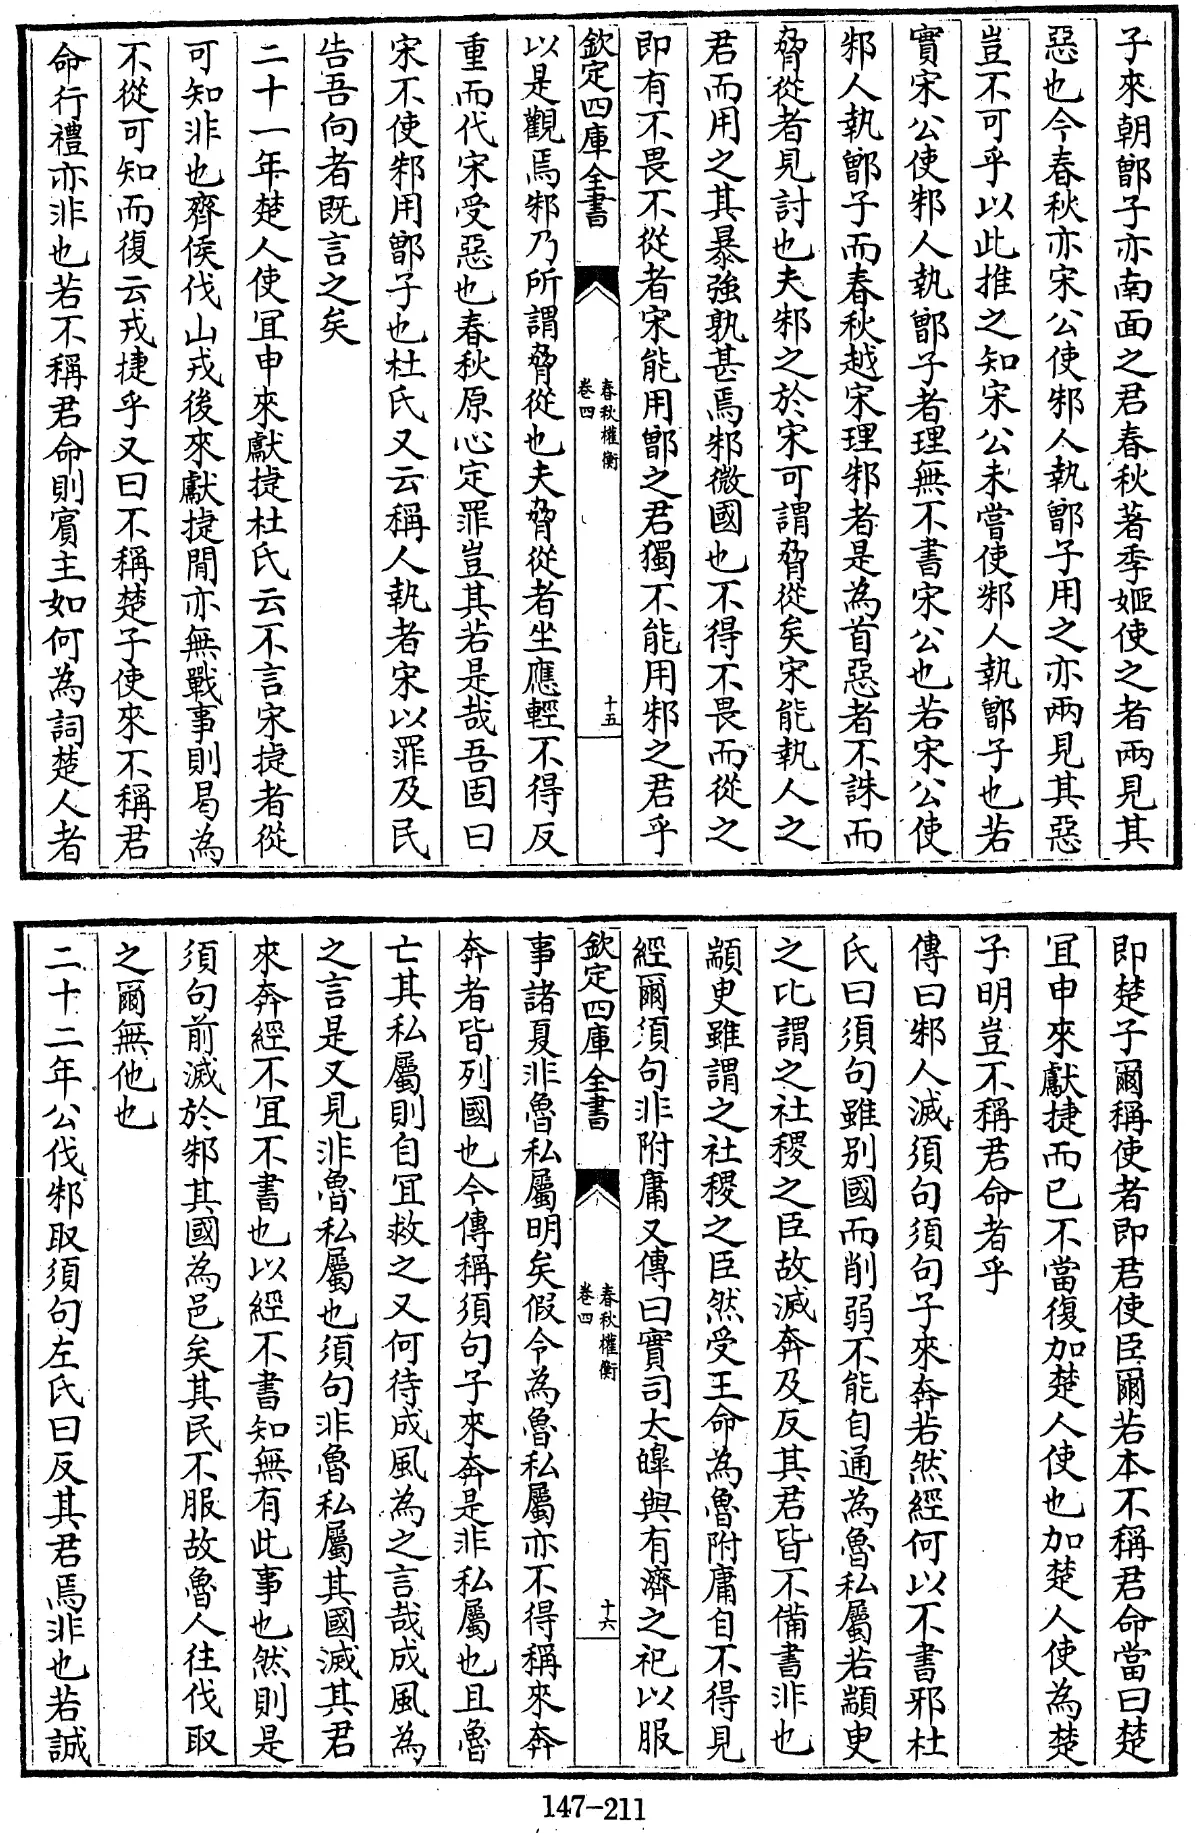 子來朝鄫子亦南面之君春秋著季姬使之者兩見其
惡也今春秋亦宋公使邾人執鄫子用之亦兩見其惡
豈不可乎以此推之知宋公未嘗使邾人執鄫子也若
實宋公使邾人執鄫子者理無不書宋公也若宋公使
邾人執鄫子而春秋越宋理邾者是為首惡者不誅而
脅從者見討也夫邾之於宋可謂脅從矣宋能執人之
君而用之其暴強孰甚焉邾微國也不得不畏而從之
即有不畏不從者宋能用鄫之君獨不能用邾之君乎
欽定四庫全書
春秋權衡
卷四
十五
以是觀焉邾乃所謂脅從也夫脅從者坐應輕不得反
重而代宋受惡也春秋原心定罪豈其若是哉吾固曰
宋不使邾用鄫子也杜氏又云稱人執者宋以罪及民
告吾向者既言之矣
二十一年楚人使宜申來獻捷杜氏云不言宋捷者從
可知非也齊侯伐山戎後來獻捷閒亦無戰事則曷為
不從可知而復云戎捷乎又曰不稱楚子使來不稱君
命行禮亦非也若不稱君命則賓主如何為詞楚人者
即楚子爾稱使者即君使臣爾若本不稱君命當曰楚
宜申來獻捷而已不當復加楚人使也加楚人使為楚
子明豈不稱君命者乎
傳曰邾人滅須句須句子來奔若然經何以不書邪杜
氏曰須句雖別國而削弱不能自通為魯私屬若顓臾
之比謂之社稷之臣故滅奔及反其君皆不備書非也
顓臾雖謂之社稷之臣然受王命為魯附庸自不得見
經爾須句非附庸又傳曰實司太皞與有濟之祀以服
欽定四庫全書
春秋權衡
卷四
十六
事諸夏非魯私屬明矣假令為魯私屬亦不得稱來奔
奔者皆列國也今傳稱須句子來奔是非私屬也且魯
亡其私屬則自宜救之又何待成風為之言哉成風為
之言是又見非魯私屬也須句非魯私屬其國滅其君
來奔經不宜不書也以經不書知無有此事也然則是
須句前滅於邾其國為邑矣其民不服故魯人往伐取
之爾無他也
二十二年公伐邾取須句左氏曰反其君焉非也若誠
147-211